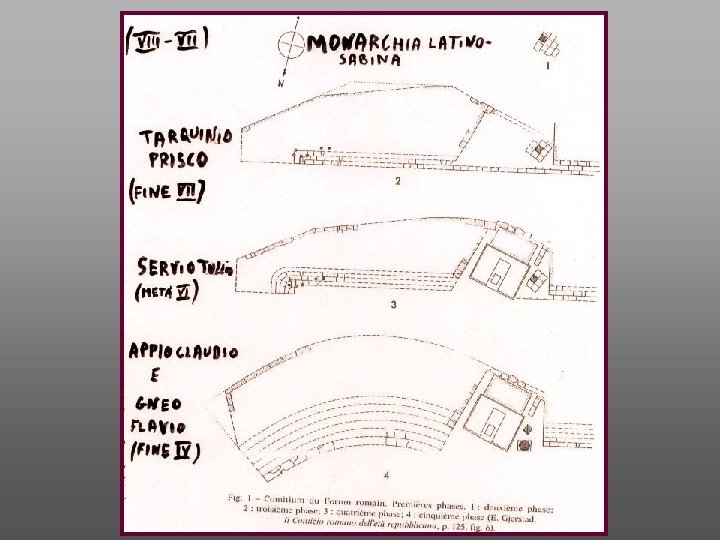 (VIII-VII)
MONARCHIA LATINO-
SABINA
N
1
TARQUINIO
PRISCO
(FINE VII)
2
SERVIO TULLIO
(METÀ VI)
3
APPIO CLAUDIO
E
GNEO
FLAVIO
(FINE IV)
4
Fig. 1 – Comitium du Forum romain. Premières phases. 1 : deuxième phase;
2 : troisième phase; 3 : quatrième phase; 4 : cinquième phase (E. Gjerstad,
Il Comizio romano dell'età repubblicana, p. 125, fig. 6).